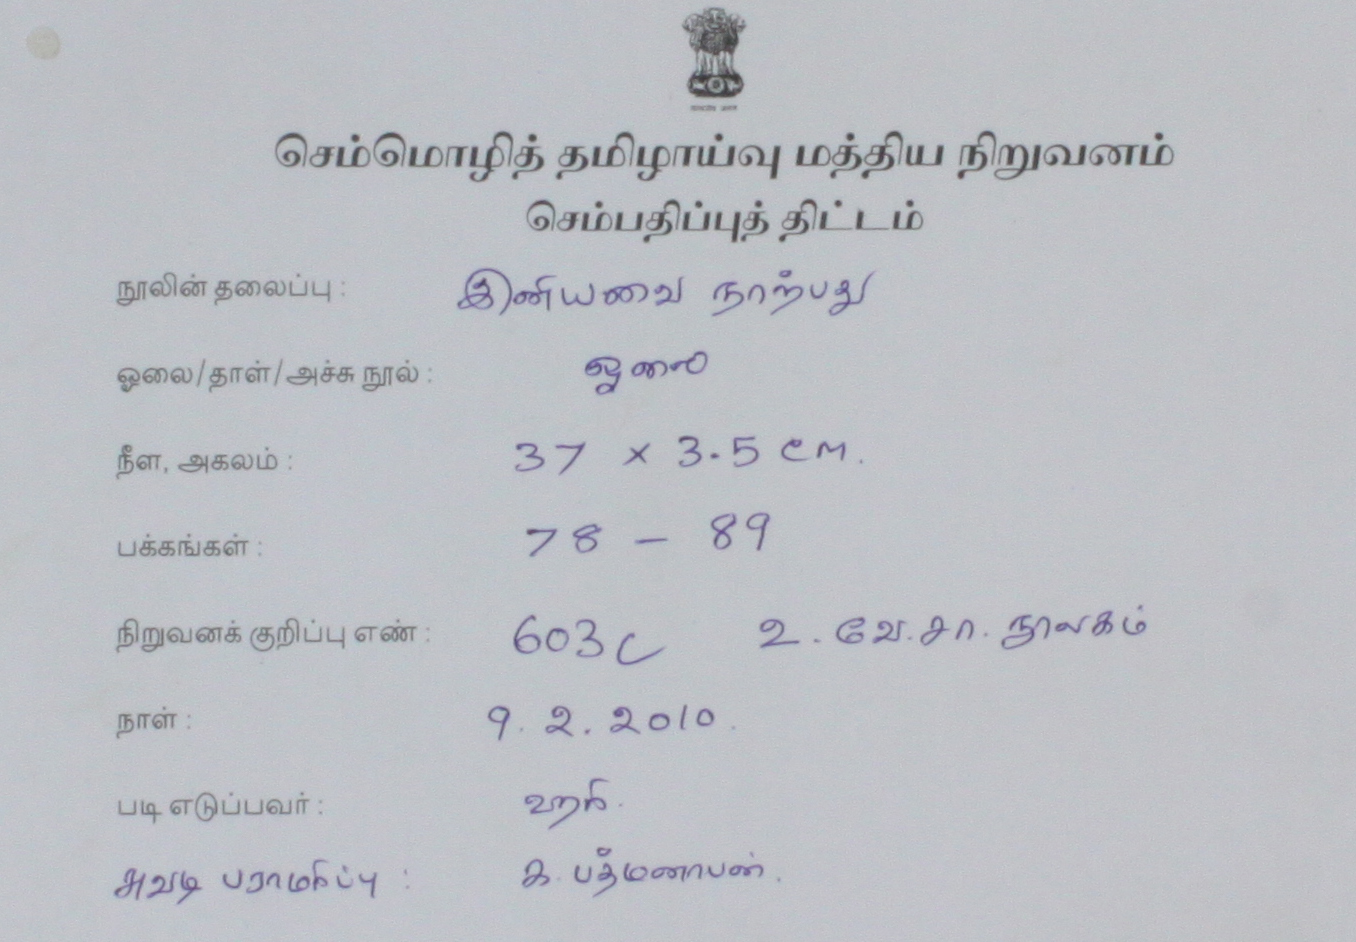 செம்மொழித் தமிழாய்வு மத்திய நிறுவனம்
செம்பதிப்புத் திட்டம்
நூலின் தலைப்பு : இனியவை நாற்பது
ஓலை/தாள்/அச்சு நூல் : ஓலை
நீள, அகலம் : 37 x 3.5 cm.
பக்கங்கள் : 78 - 89
நிறுவனக் குறிப்பு எண் : 603 C உ. வே. சா. நூலகம்
நாள் : 9. 2. 2010.
படி எடுப்பவர் : ஹரி.
சுவடி பராமரிப்பு : க. பத்மனாபன்.